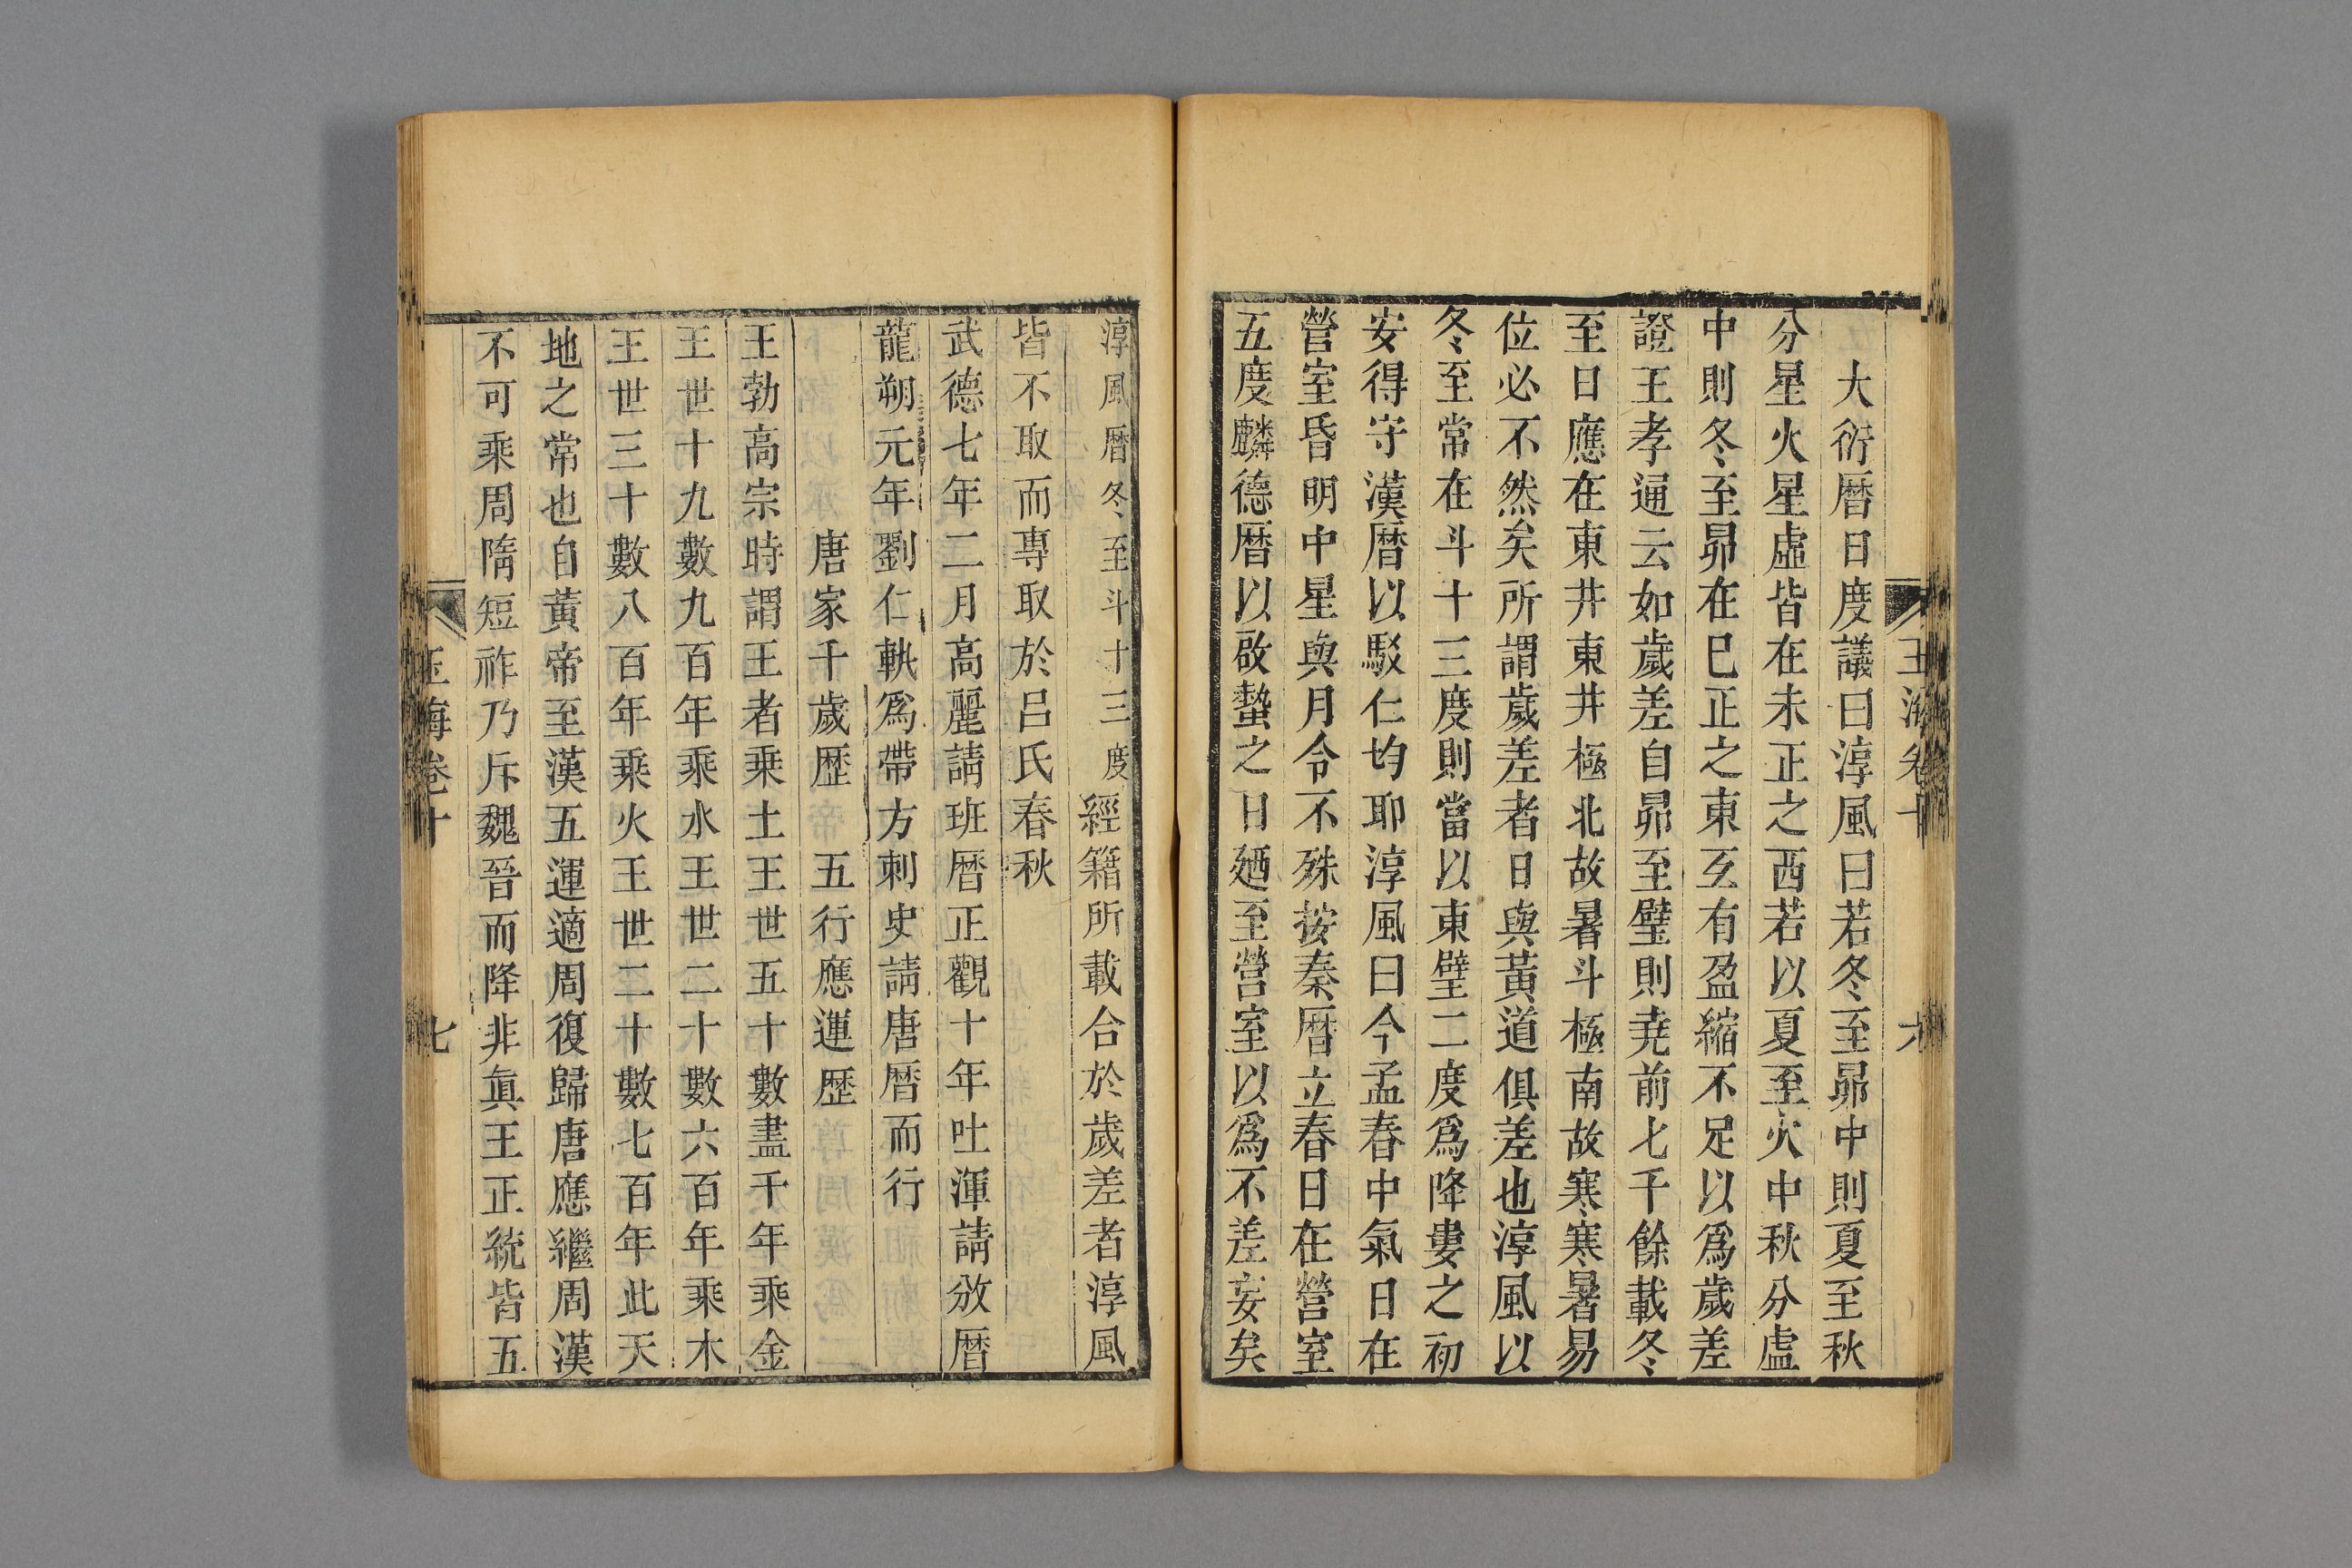 玉海卷十 六
大衍暦日度議曰淳風曰若冬至昴中則夏至秋
分星火星虛皆在未正之西若以夏至火中秋分虛
中則冬至昴在巳正之東互有盈縮不足以爲歲差
證王孝通云如歲差自昴至壁則堯前七千餘載冬
至日應在東井東井極北故暑斗極南故寒寒暑易
位必不然矣所謂歲差者日與黃道俱差也淳風以
冬至常在斗十三度則當以東壁二度爲降婁之初
安得守漢暦以駁仁均耶淳風曰今孟春中氣日在
營室昏明中星與月令不殊按秦暦立春日在營室
五度麟德暦以啟蟄之日廼至營室以爲不差妄矣
淳風暦冬至斗十三度經籍所載合於歲差者淳風
皆不取而專取於呂氏春秋
武德七年二月高麗請班暦正觀十年吐渾請放暦
龍朔元年劉仁軌爲帶方刺史請唐暦而行
唐家千歲歷 五行應運歷
王勃高宗時謂王者乗土王世五十數盡千年乘金
王世十九數九百年乘水王世二十數六百年乘木
王世三十數八百年乘火王世二十數七百年此天
地之常也自黃帝至漢五運適周復歸唐應繼周漢
不可乘周隋短祚乃斥魏晉而降非眞王正統皆五
玉海卷十 七